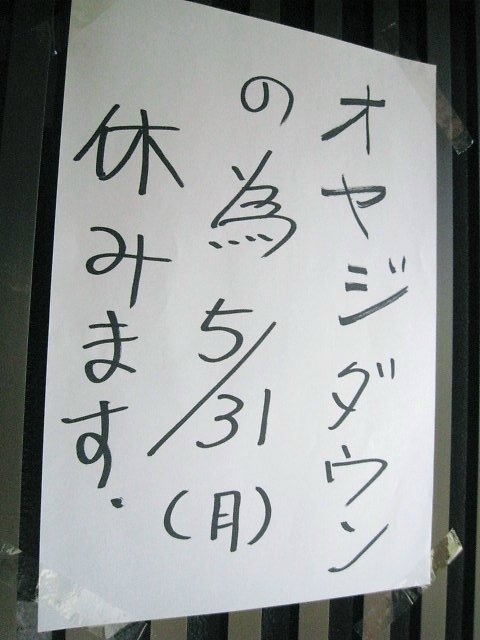 オヤジダウン
の為 5/31(月)
休みます.